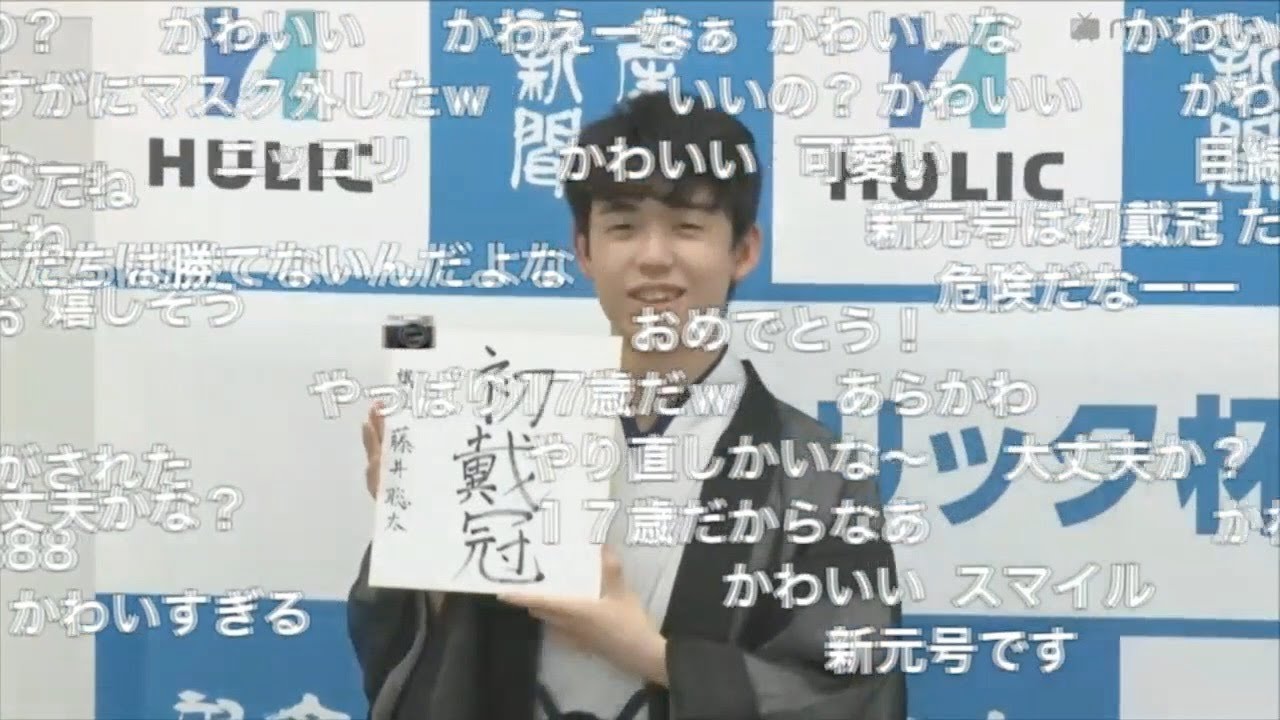 の? かわいい かわえーなぁ かわいいな かわい
すがにマスク外したw いいの? かわいい かわ
産
新聞
HULIC ニッコリ かわいい 可愛い HULIC
なーたね
新元号は初戴冠 た
たちは勝てないんだよな
危険だなーー
嬉しそう
おめでとう!
やっぱり17歳だw あらかわ
初戴冠
藤井聡太
リック杯
やり直しかいな〜 大丈夫か?
がされた
丈夫かな?
17歳だからなあ か
88
かわいい スマイル
かわいすぎる
新元号です